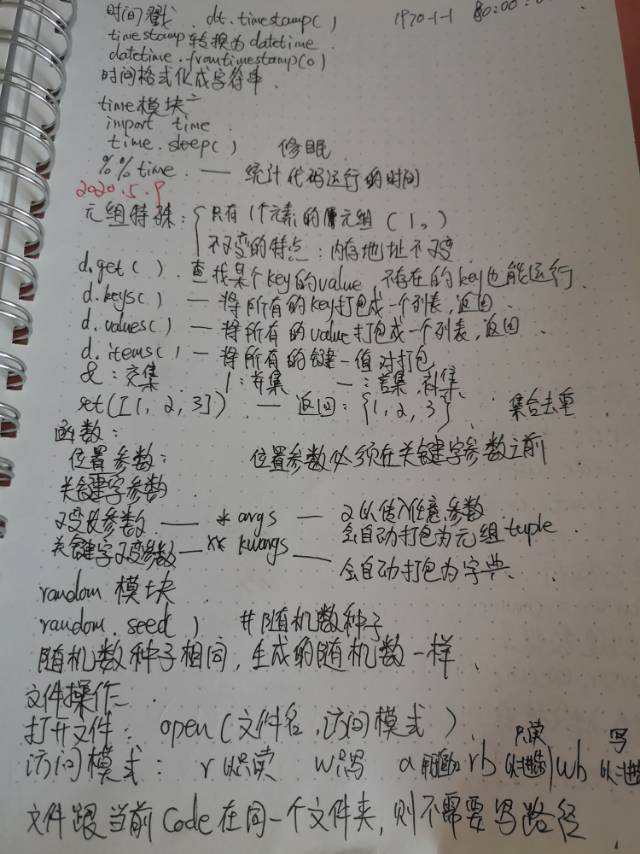 时间戳 dt.timestamp() 1970-1-1 80:00:0
timestamp转换为datetime
datetime.fromtimestamp(0)
时间格式化成字符串
time模块
import time
time.sleep() 修眠
%%time — 统计代码运行的时间
2020.5.9
元组特殊: 只有1个元素的元组 (1,)
不可变的特点: 内存地址不变
d.get() 查找某个key的value 不存在的key也能运行
d.keys() — 将所有的key打包成一个列表,返回
d.values() — 将所有的value打包成一个列表,返回
d.items() — 将所有的键-值对打包
&: 交集 |: 并集 —: 差集,补集
set([1,2,3]) — 返回: {1,2,3} 集合去重
函数:
位置参数: 位置参数必须在关键字参数之前
关键字参数
可变长参数 — *args — 可以传入任意参数
会自动打包为元组tuple
关键字可变参数 — ** kwargs — 会自动打包为字典
random 模块
random.seed() #随机数种子
随机数种子相同,生成的随机数一样
文件操作
打开文件: open(文件名,访问模式)
只读 写
访问模式: r 以只读 w只写 a rb 以进制 wb 以进
文件跟当前Code在同一个文件夹,则不需要写路径